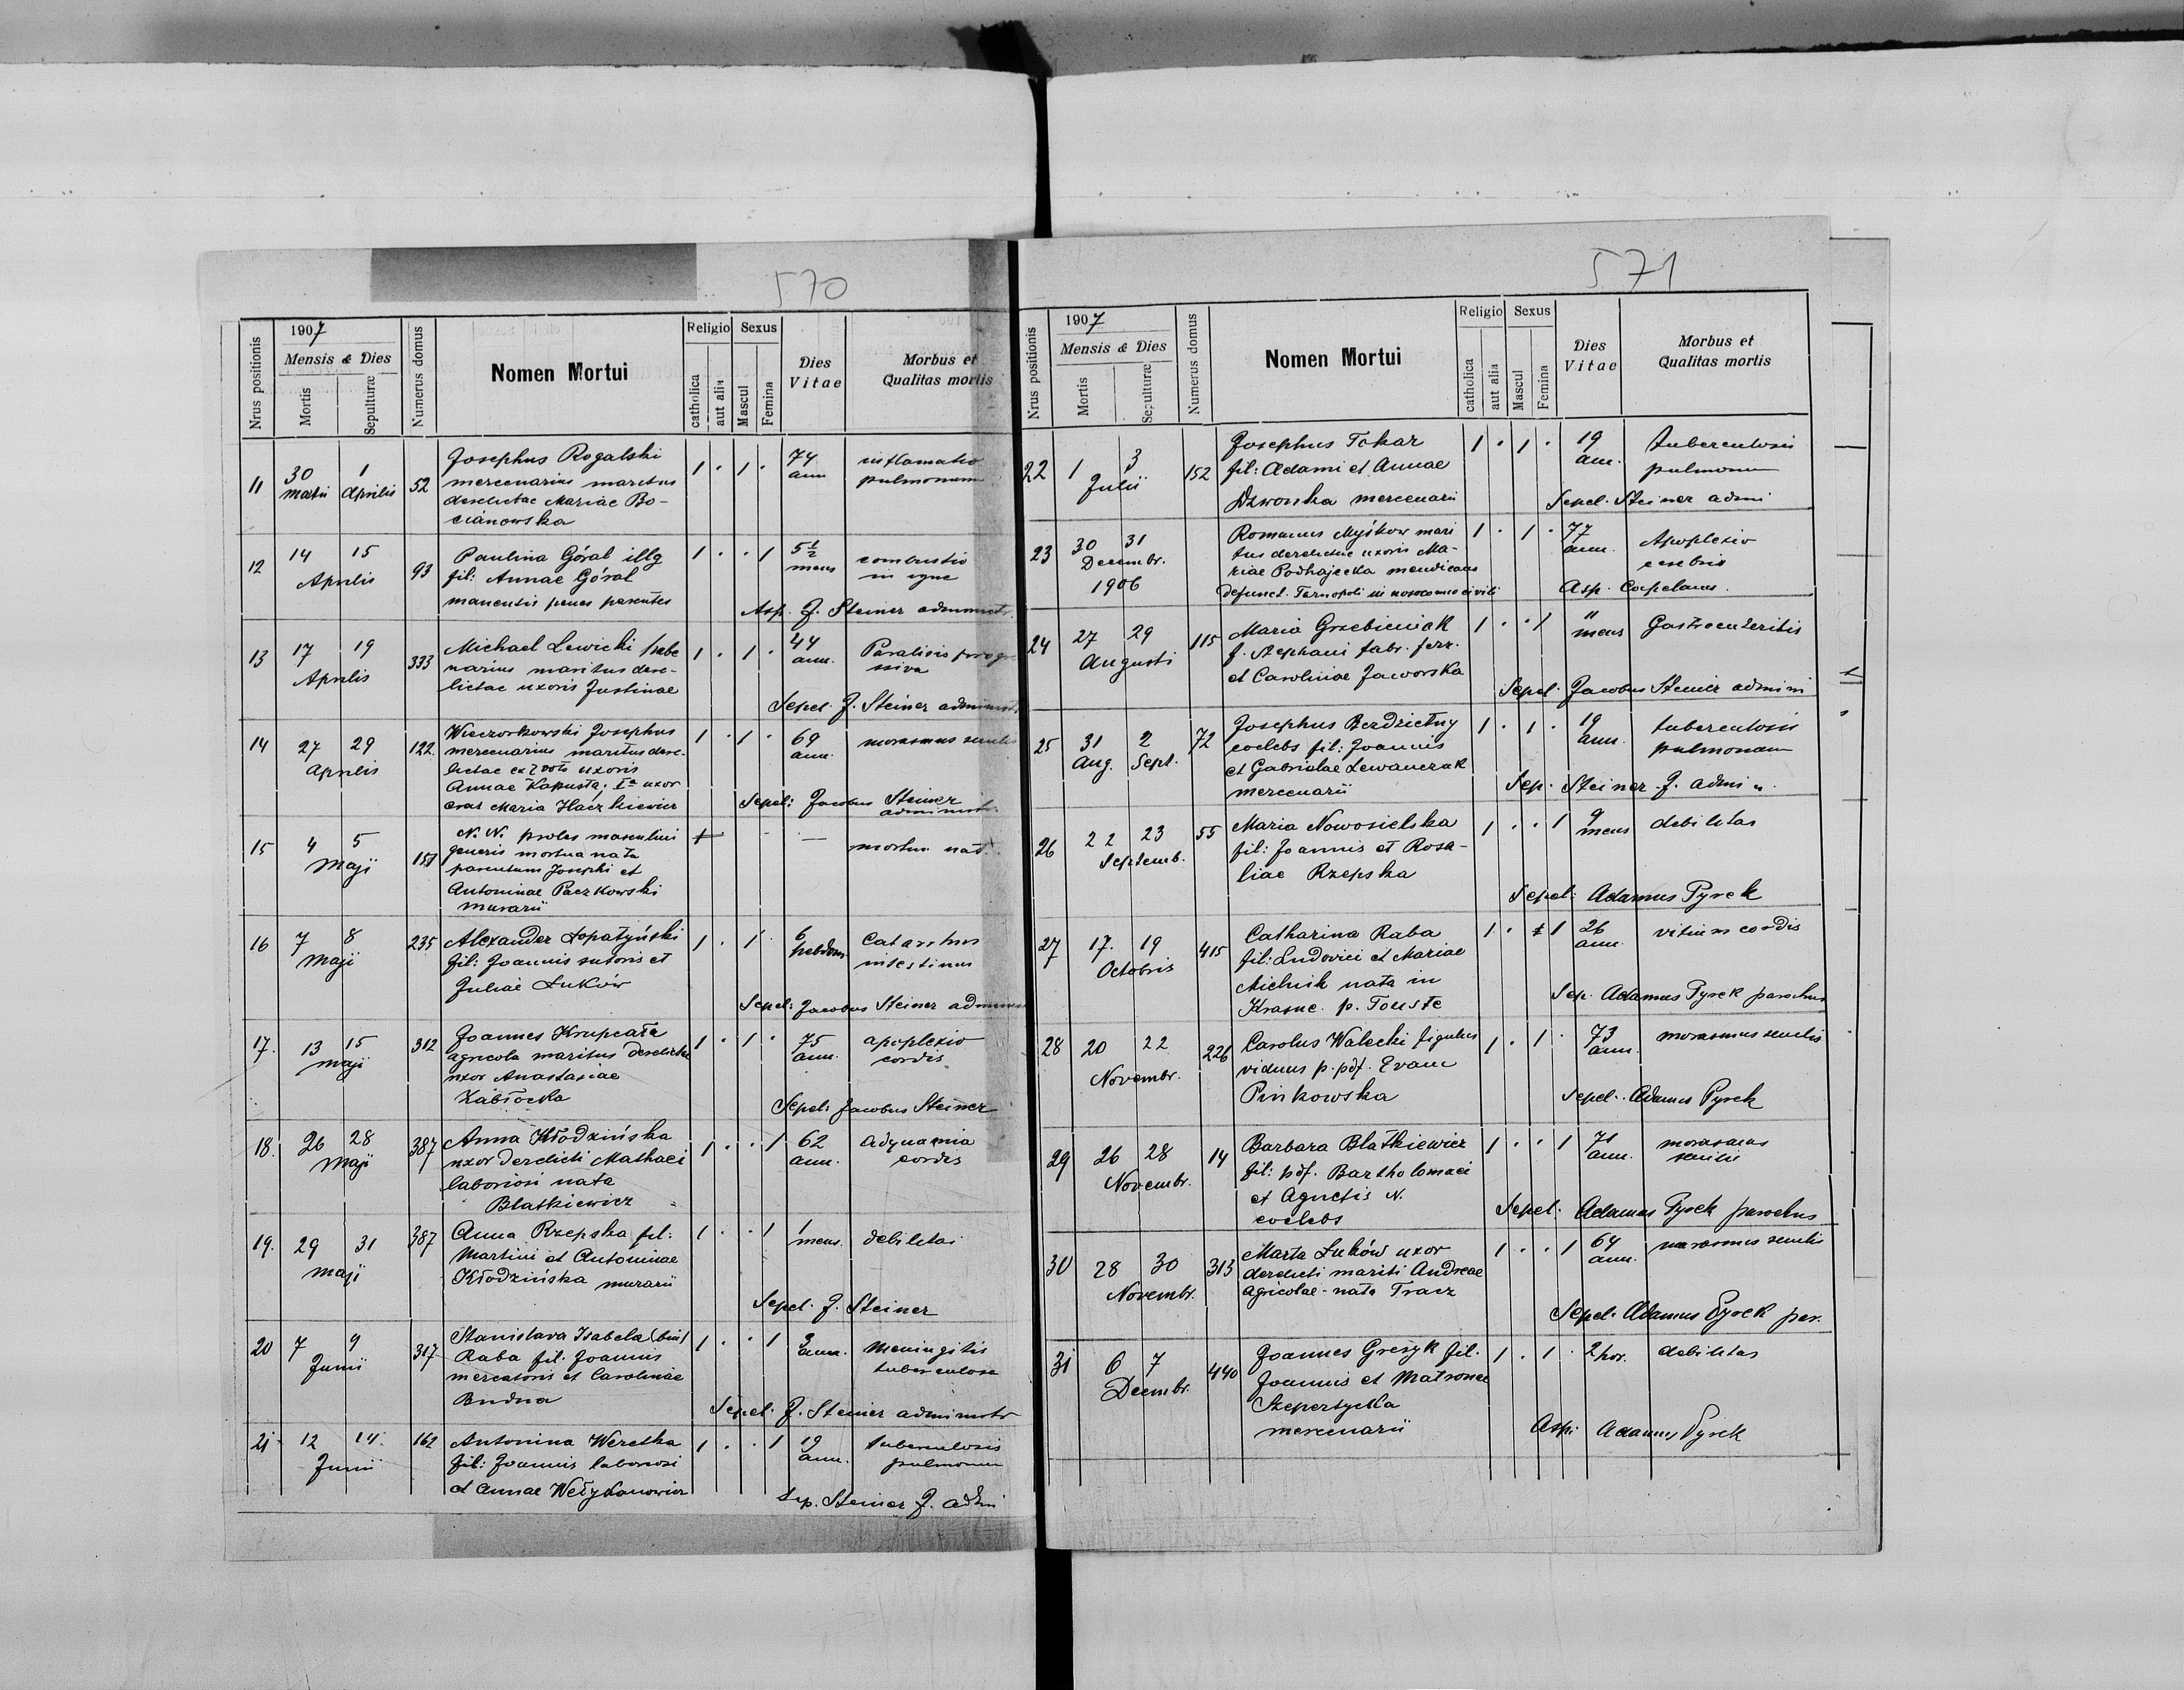 570
Nrus positionis
1907
Mensis & Dies
Mortis
Sepulturæ
Numerus domus
Nomen Mortui
Religio
catholica
aut alia
Sexus
Mascul
Femina
Dies Vitae
Morbus et
Qualitas mortis
11 30 Martii 1 Aprilis 52 Josephus Rogalski 1 · 1 · 74 ann inflamatio
mercenarius maritus pulmonum
derelictae Mariae Bo-
cianowska
12 14 15 Aprilis 93 Paulina Góral illg 1 · · 1 5½ mens combustio
fil: Annae Góral in igne
manentis penes parentes
Asp. J. Steiner administr.
13 17 19 Aprilis 333 Michael Lewicki 1 · 1 · 44 ann. Paralisis progre
narius maritus dere- ssiva
lictae uxoris Justinae
Sepel. J. Steiner administ
14 27 29 Aprilis 122 Wieczorkowski Josephus 1 · 1 · 69 ann. marasmus senilis
mercenarius maritus dere-
lictae ex 2 voto uxoris
Annae Kapusta; Ia uxor
erat Maria Haczkiewicz
Sepel: Jacobus Steiner
administr.
15 4 5 Maji 151 N. N. proles masculini
generis mortua nata mortu. nat.
parentum Josephi et
Antoninae Paczkowski
murarii
16 7 8 Maji 235 Alexander Łopatyński 1 · 1 · 6 hebdom. Catarrhus
fil: Joannis sutoris et intestinus
Juliae Łuków
Sepel: Jacobus Steiner admini
17. 13 15 Maji 312 Joannes Krupcała 1 · 1 · 75 ann. apoplexio
agricola maritus derelictae cordis
uxor Anastasiae
Zabłocka
Sepel: Jacobus Steiner
18. 26 28 Maji 387 Anna Kłodzińska 1 · · 1 62 ann. Adynamia
uxor derelicti Mathaei cordis
laboriosi nata
Blatkiewicz
19. 29 31 Maji 387 Anna Rzepska fil: 1 · · 1 1 mens. debilitas
Martini et Antoninae
Kłodzińska murarii
Sepel. J. Steiner
20 7 9 Junii 317 Stanislava Isabela (bin) 1 · · 1 3 ann. Meningitis
Raba fil. Joannis tuberculosa
mercatoris et Carolinae
Budna
Sepel. J. Steiner administr
21 12 14. Junii 162 Antonina Weretka 1 · · 1 19 ann. tuberculosis
fil: Joannis laboriosi pulmonum
et Annae Wełykanowicz
Sep. Steiner J. admi
571
Nrus positionis
1907
Mensis & Dies
Mortis
Sepulturæ
Numerus domus
Nomen Mortui
Religio
catholica
aut alia
Sexus
Mascul
Femina
Dies Vitae
Morbus et
Qualitas mortis
22 1 3 Julii 152 Josephus Tokar 1 · 1 · 19 ann. tuberculosis
fil: Adami et Annae pulmonum
Dzwonka mercenarii
Sepel. Steiner admi
23 30 31 Decembr. 1906 Romanus Myśkow mari 1 · 1 · 77 ann. Apoplexio
tus derelictae uxoris Ma- cerebri
riae Podhajecka mendicans
defunct. Tarnopoli in nosocomio civili
Asp. Capelanus.
24 27 29 Augusti 115 Maria Grzebieniak 1 · · 1 11 mens Gastroenteritis
f. Stephani fabr. ferr.
et Carolinae Jaworska
Sepel. Jacobus Steiner admini
25 31 Aug. 2 Sept. 72 Josephus Bezdzietny 1 · 1 · 19 ann. tuberculosis
coelebs fil: Joannis pulmonum
et Gabrielae Lewanczak
mercenarii
Sep. Steiner J. admin.
26 22 23 Septemb. 55 Maria Nowosielska 1 · · 1 9 mens debilitas
fil: Joannis et Rosa-
liae Rzepska
Sepel: Adamus Pyrek
27 17. 19 Octobris 415 Catharina Raba 1 · 1 26 ann. vitium cordis
fil: Ludovici et Mariae
Mielnik nata in
Krasne p. Touste
Sep. Adamus Pyrek parochus
28 20 22 Novembr. 226 Carolus Walecki figulus 1 · 1 · 73 ann. marasmus senilis
viduus p. pdf. Evam
Pinkowska
Sepel. Adamus Pyrek
29 26 28 Novembr. 14 Barbara Blatkiewicz 1 · · 1 71 ann. marasmus
fil: pdf. Bartholomaei senilis
et Agnetis N.
coelebs
Sepel. Adamus Pyrek parochus
30 28 30 Novembr. 313 Marta Łuków uxor 1 · · 1 64 ann. marasmus senilis
derelicti mariti Andreae
agricolae - nata Tracz
Sepel. Adamus Pyrek par.
31 6 7 Decembr. 440 Joannes Gresyk fil. 1 · 1 · 2 hor. debilitas
Joannis et Matronae
Szepertycka
mercenarii
Asp: Adamus Pyrek